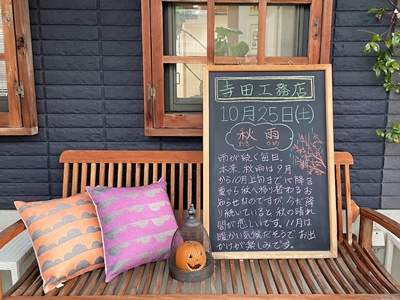 寺田工務店
10月25日(土)
秋雨
あき さめ
雨が続く毎日。
本来、秋雨は9月
から10月上旬までに降る
夏から秋へ移り替わるお
知らせなのですが、今だ降
り続いていると秋の晴れ
間が恋しいです。11月は
暖かい気候だそうでお出
かけが楽しみです。